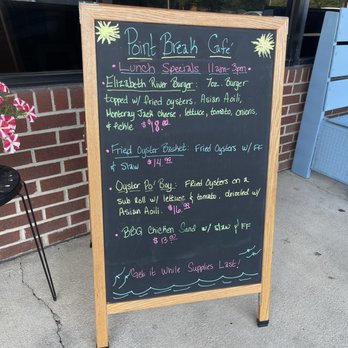 Point Break Cafe'
• Lunch Specials 11am-3pm •
• Elizabeth River Burger: 7oz. Burger
topped w/ fried oysters, Asian Aoili,
Monteray Jack cheese, lettuce, tomato, onions,
and pickle $18.00
• Fried Oyster Basket: Fried Oysters w/ FF
& Slaw $14.99
• Oyster Po' Boy: Fried Oysters on a
sub Roll w/ lettuce & tomato, drizzled w/
Asian Aoili. $16.99
• BBQ Chicken Sand w/ slaw & FF
$13.99
Get it While Supplies Last!